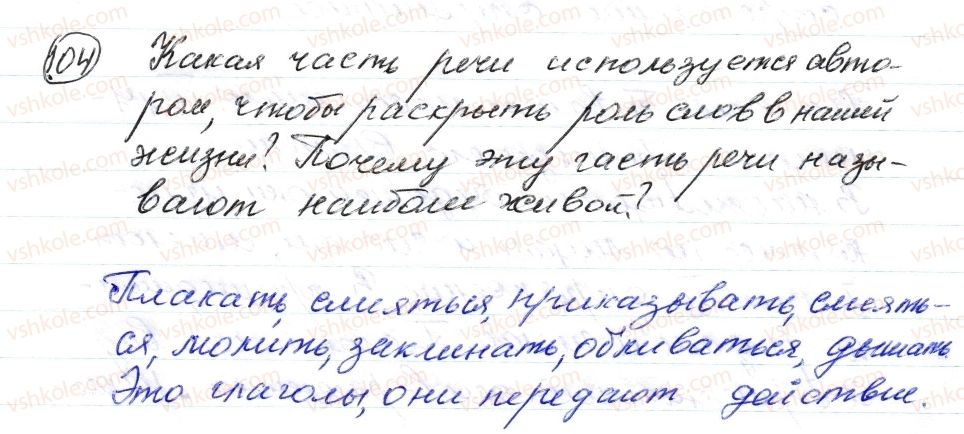 104 Какая часть речи используется авто-
ром, чтобы раскрыть роль слов в нашей
жизни? Почему эту часть речи назы-
вают наиболее живой?
Плакать, смеяться, приказывать, смеять-
ся, молить, заклинать, обливаться, дышать.
Это глаголы, они передают действие.